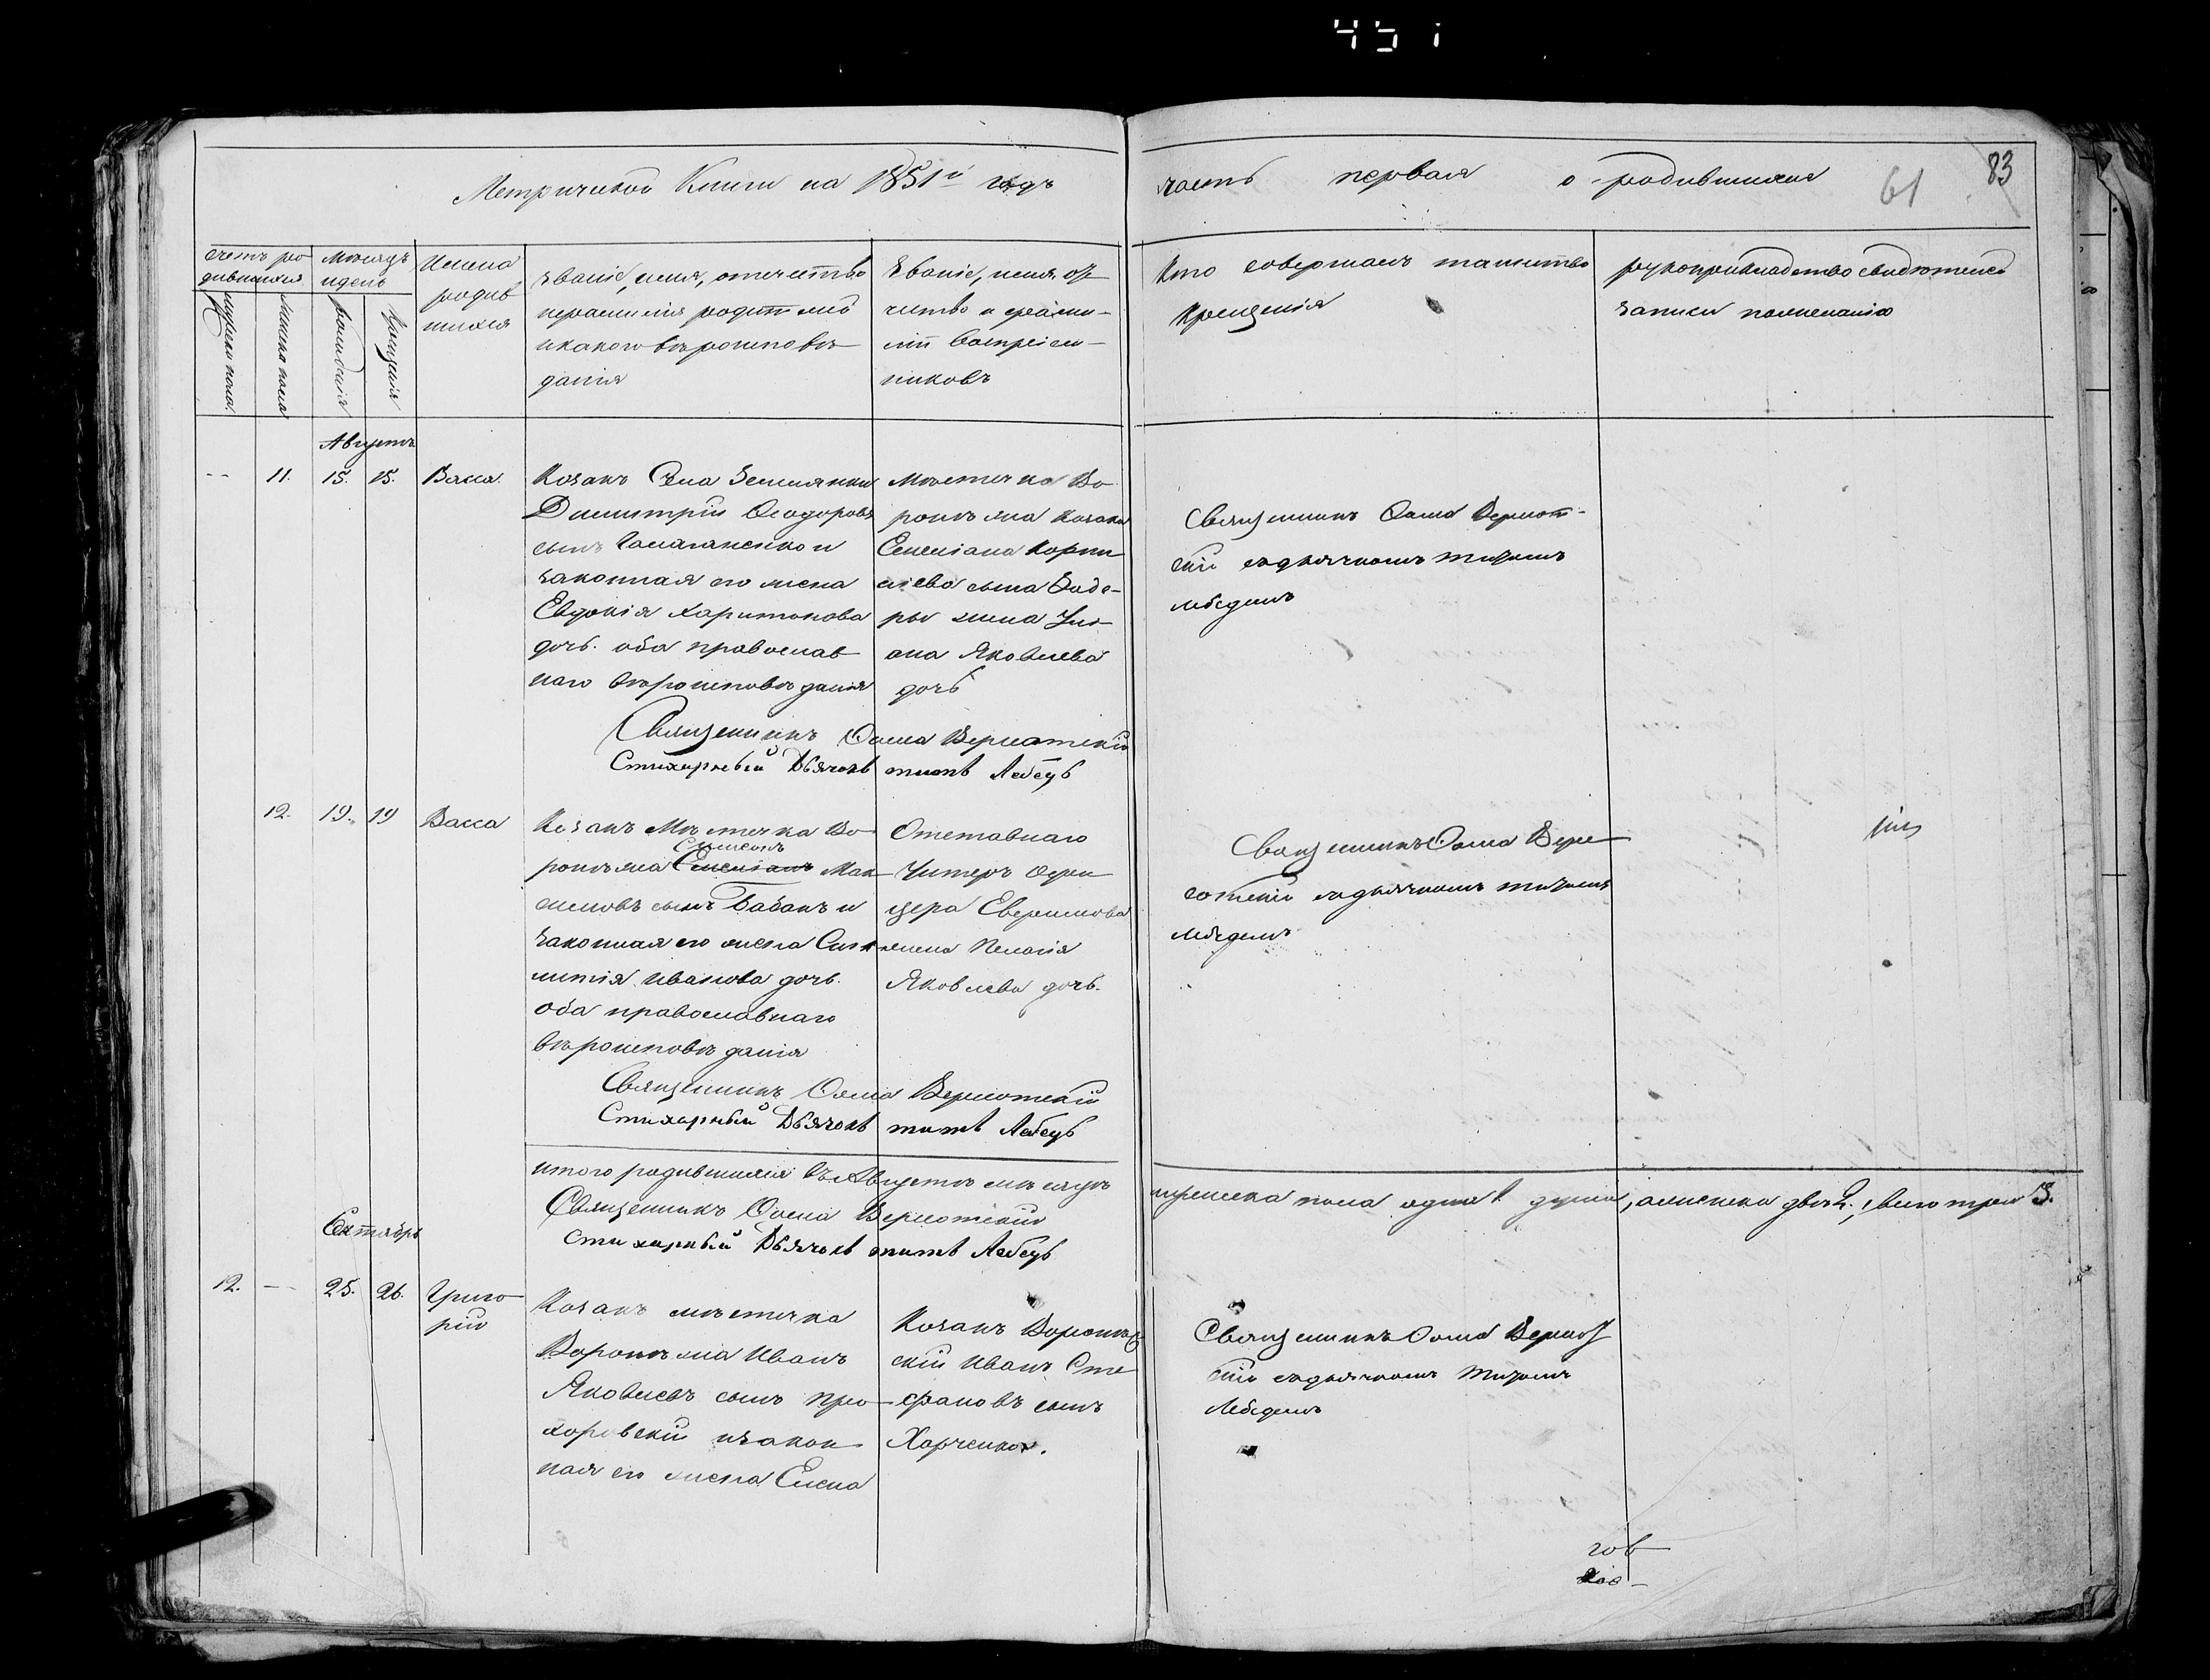 Метрической Книги на 1851й годъ
часть первая о родившихся
61 83
счетъ ро
дившихся
мужеска пола
женска пола
Месяцъ
и день
рожденія
крещенія
Имена
родив
шихся
Званіе, имя, отчество
и фамилія родителей
и какого вероиспове
данія
Званіе, имя, от
чество и фами-
лія Воспріем-
никовъ
Кто совершалъ таинство
Крещенія
рукоприкладство свидетелей
записи по желанію
Августъ
-- 11. 15. 15. Васса.
Козакъ Села Землянки
Димитрій Ѳеодоровъ
сынъ и
законная его жена
Евдокія Харитонова
дочь. оба православ
наго вероисповеданія
местечка Во
ронежа козака
Емеліана Корни
ліева сына
жена Ули-
ана Яковлева
дочь
Священникъ Ѳома
съ дьячкомъ Титомъ
Лебедемъ
Священникъ Ѳома
Стихарный Дьячокъ титъ Лебедь
12. 19. 19 Васса
Козакъ Местечка Во-
ронежа Емеліанъ Мак
Симеонъ
симовъ сынъ Бабакъ и
законная его жена Син
клитія Иванова дочь.
оба православнаго
вероисповеданія
Отставнаго
Унтеръ Офи
цера
жена Пелагія
Яковлева дочь.
Священникъ Ѳома
съ дьячкомъ титомъ
Лебедемъ
Священникъ Ѳома
Стихарный Дьячокъ титъ Лебедь
итого родившихся въ Августе месяце
мужеска пола одна 1 душа, а женска две 2., всего три 3.
Священникъ Ѳома
Стихарный Дьячокъ титъ Лебедь
Сентябрь
12. -- 25. 26. Григо
рій
Козакъ местечка
Воронежа Иванъ
Яковлевъ сынъ Про
хоровскій и закон
ная его жена Елена
Козакъ Воронеж
скій Иванъ Сте
фановъ сынъ
Харченко.
Священникъ Ѳома
съ дьячкомъ Титомъ
Лебедемъ